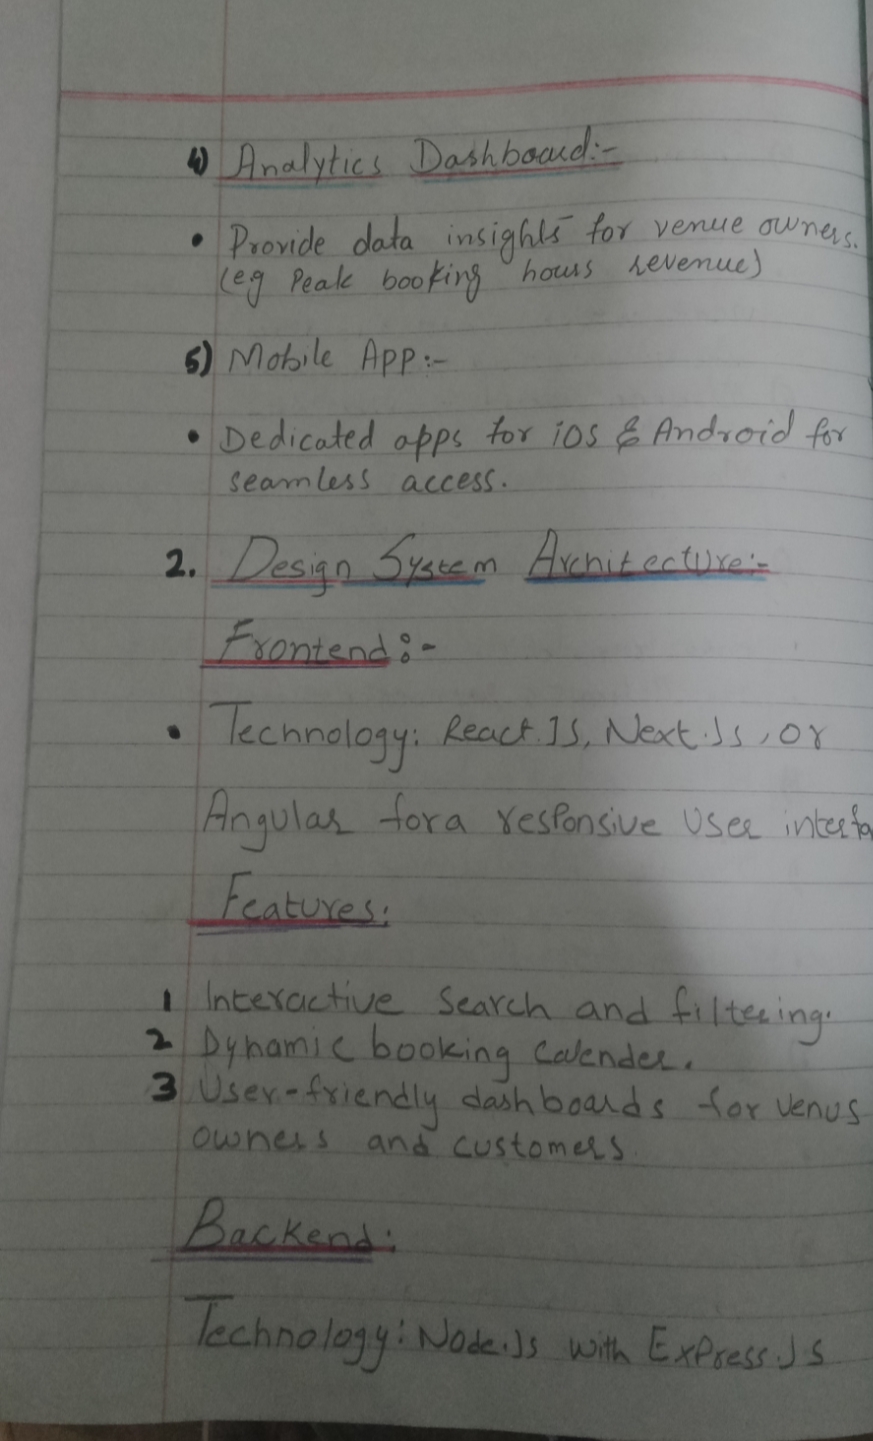 4) Analytics Dashboard:-
• Provide data insights for venue owners.
(eg Peak booking hours revenue)
5) Mobile App:-
• Dedicated apps for ios & Android for
seamless access.
2. Design System Architecture:-
Frontend:-
• Technology: React.JS, Next.Js, or
Angular for a responsive User interfa
Features:
1 Interactive Search and filtering.
2 Dynamic booking Calender.
3 User-friendly dashboards for venus
owners and customers
Backend:
Technology: Node.Js with Express.JS